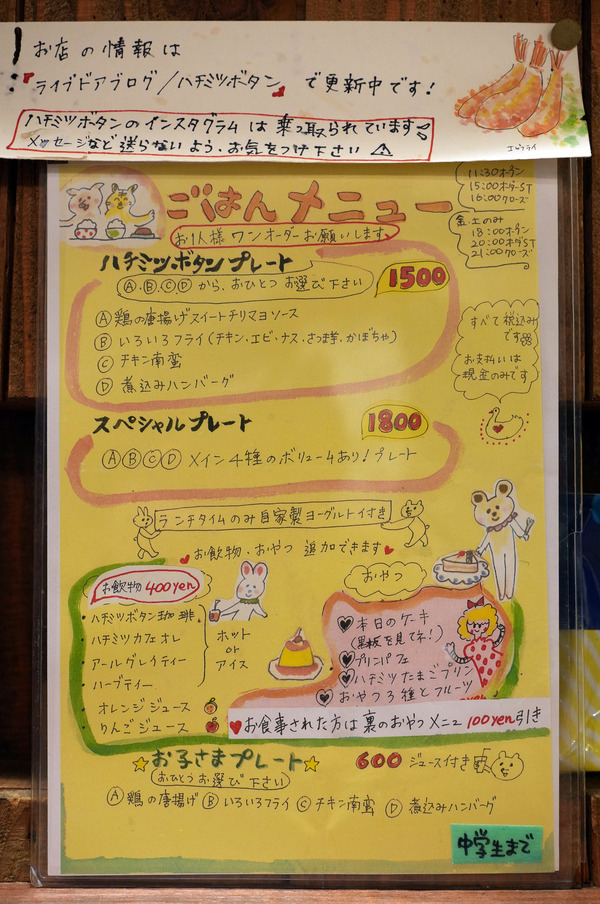 お店の情報は
『ライブドアブログ/ハチミツボタン』で更新中です!
ハチミツボタンのインスタグラムは乗っ取られています
メッセージなど送らないよう、お気をつけ下さい ⚠
エビフライ
11:30オープン
15:00オーダーST
16:00クローズ
金.土のみ
18:00オープン
20:00オーダST
21:00クローズ
ごはんメニュー
お1人様ワンオーダーお願いします
ハチミツボタンプレート
Ⓐ.Ⓑ.Ⓒ.Ⓓから、おひとつお選び下さい
1500
Ⓐ 鶏の唐揚げスイートチリマヨソース
Ⓑ いろいろフライ(チキン・エビ・ナス・さつま芋・かぼちゃ)
Ⓒ チキン南蛮
Ⓓ 煮込みハンバーグ
すべて税込み
です
お支払いは
現金のみです
スペシャルプレート
1800
ⒶⒷⒸⒹメイン4種のボリュームあり!プレート
ランチタイムのみ自家製ヨーグルト付き
お飲物、おやつ 追加できます
お飲物 400yen
・ハチミツボタン珈琲
・ハチミツカフェオレ
・アールグレイティー
・ハーブティー
ホット
or
アイス
・オレンジジュース
・りんごジュース
おやつ
♥本日のケーキ
(黒板を見てネ!)
♥プリンパフェ
♥ハチミツたまごプリン
♥おやつ3種とフルーツ
♥お食事された方は裏のおやつメニュー100yen引き
☆お子さまプレート☆
600 ジュース付き
おひとつお選び下さい
Ⓐ鶏の唐揚げ Ⓑいろいろフライ Ⓒチキン南蛮 Ⓓ煮込みハンバーグ
中学生まで